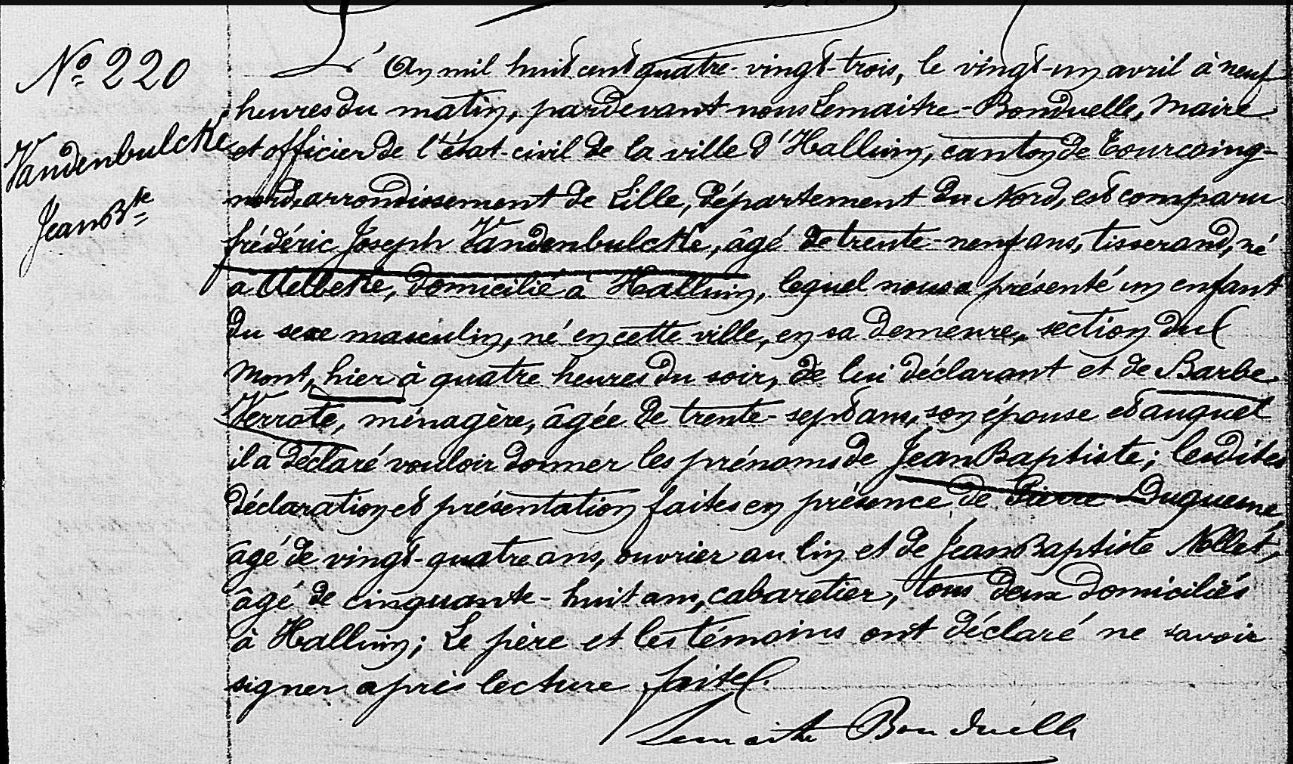 N° 220
Vandenbulcke
Jean Bte
L'An mil huit cent quatre-vingt-trois, le vingt-un avril à neuf
heures du matin, pardevant nous Lemaitre-Bonduelle, Maire
et officier de l'état-civil de la ville d'Halluin, canton de Tourcoing-
nord, arrondissement de Lille, département du Nord, est comparu
frédéric Joseph Vandenbulcke, âgé de trente-neuf ans, tisserand, né
à Aelbeke, domicilié à Halluin, lequel nous a présenté un enfant
du sexe masculin, né en cette ville, en sa demeure, section du
Mont, hier à quatre heures du soir, de lui déclarant et de Barbe
Verrote, ménagère, âgée de trente-sept ans, son épouse et auquel
il a déclaré vouloir donner les prénoms de Jean Baptiste; lesdites
déclaration et présentation faites en présence de Pierre Duquesne
âgé de vingt-quatre ans, ouvrier au lin et de Jean Baptiste Nollet,
âgé de cinquante-huit ans, cabaretier, tous deux domiciliés
à Halluin; Le père et les témoins ont déclaré ne savoir
signer après lecture faite.
Lemaitre Bonduelle